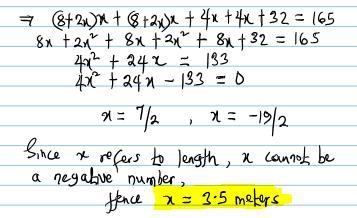 ⇒ (8+2x)x + (8+2x)x + 4x + 4x + 32 = 165
8x + 2x² + 8x + 2x² + 8x + 32 = 165
4x² + 24x = 133
4x² + 24x - 133 = 0
x = 7/2 , x = -19/2
Since x refers to length, x cannot be
a negative number,
Hence x = 3.5 meters